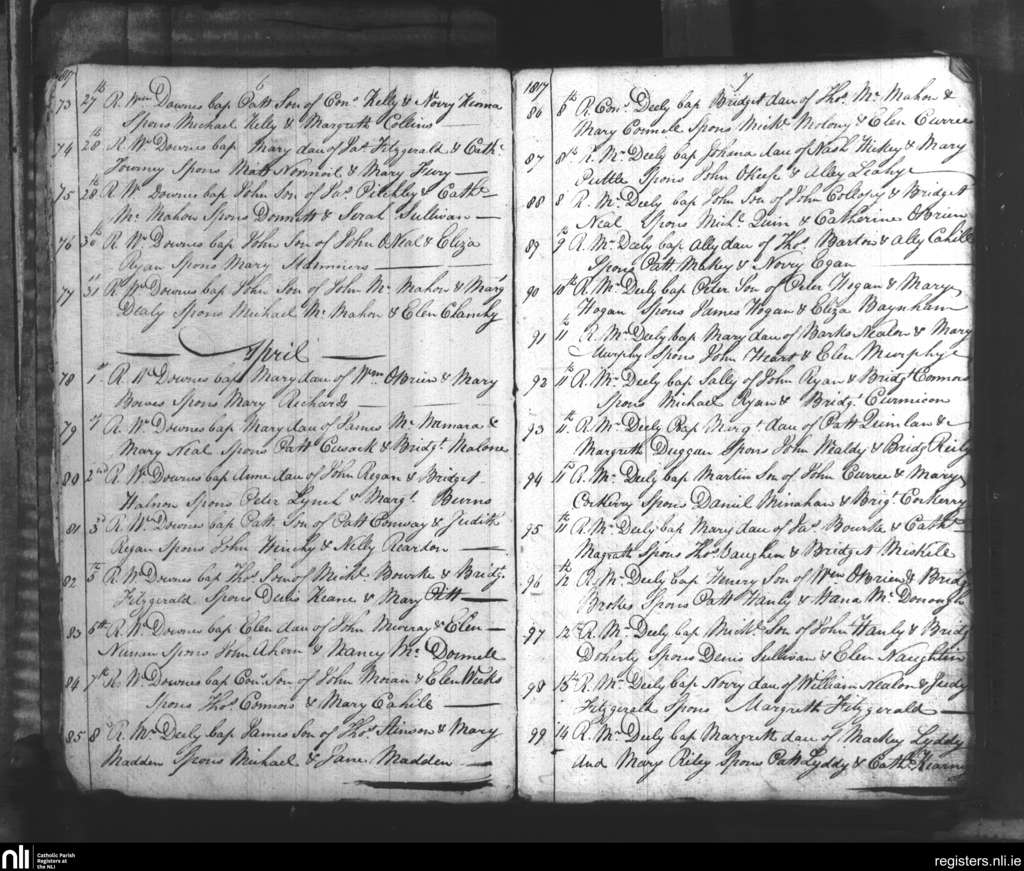 1817 6
73 27th R. Wm Downes bap Patt Son of Con.s Kelly & Norry Kenna
Spons Michael Kelly & Margreth Collins
74 28th R. Wm Downes bap Mary dau of Jas Fitzgerald & Cath.e
Spons Matt & Mary
75 28th R Wm Downes bap John Son of Jas & Cath.e
Mc Mahon Spons & Sullivan
76 30th R. Wm Downes bap John Son of John ONeal & Eliza
Ryan Spons Mary Stammers
77 31 R. Wm Downes bap John Son of John Mc Mahon & Marg.t
Dealy Spons Michael Mc Mahon & Elen Clanchy
April
78 1st R. Wm Downes bap Mary dau of Wm OBrien & Mary
Bowes Spons Mary Richards
79 R. Wm Downes bap Mary dau of James Mc Mamara &
Mary Neal Spons Patt Cusack & Bridgt. Malone
80 2nd R. Wm Downes bap Anne dau of John Regan & Bridget
Spons Peter Lynch & Margt. Burns
81 3d R. Wm Downes bap Patt. Son of Patt Conway & Judith
Regan Spons John & Nelly Reardon
82 5th R. Wm Downes bap Thos Son of Michl. Bourke & Bridgt.
Fitzgerald Spons Denis Keane & Mary Patt
83 6th R. Wm Downes bap Elen dau of John Murray & Elen
Nunan Spons John Ahern & Nancy Mc Donnell
84 7th R. Wm Downes bap Con.s Son of John Moran & Elen Weeks
Spons Thos Connors & Mary Cahill
85 8 R. Mr. Deely bap James Son of Thos Hinson & Mary
Madden Spons Michael & Jane Madden
1817 7
86 8th R. Con.s Deely bap Bridget dau of Thos. Mc Mahon &
Mary Connell Spons Michl. Molony & Elen Curree
87 8th R. Mr. Deely bap Johana dau of Hickey & Mary
Spons John OKeefe & Alley Leahy
88 8 R. Mr. Deely bap John Son of John Collopy & Bridget
Neal Spons Michl. Quin & Catherine OBrien
89 9th R. Mr. Deely bap Ally dau of Thos. Barton & Ally Cahill
Spons Patt. Mackey & Norry Egan
90 10th R. Mr. Deely bap Peter Son of Peter Hogan & Mary
Hogan Spons James Hogan & Eliza Baynham
91 11th R. Mr. Deely bap Mary dau of Nealon & Mary
Murphy Spons John Heart & Elen Murphy
92 11th R. Mr. Deely bap Sally of John Ryan & Bridgt Connors
Spons Michael Ryan & Bridgt
93 11th R. Mr. Deely Bap Margt. dau of Patt Quinlan &
Margreth Duggan Spons John Healdy & Bridgt Reily
94 11th R. Mr. Deely bap Martin Son of John Curree & Mary
Corkerry Spons Daniel Minahan & Brigt Corkerry
95 11th R. Mr. Deely bap Mary dau of Jas Bourke & Cathe.
Magrath Spons Thos Vaughen & Bridget Miskell
96 12th R. Mr. Deely bap Henery Son of Wm OBrien & Bridgt
Brokes Spons Patt Hanly & Hana Mc Donough
97 12th R. Mr. Deely bap Michl. Son of John Hanly & Bridgt
Doherty Spons Denis Sullivan & Elen Naughtin
98 13th R. Mr. Deely bap Norry dau of William Nealon & Judy
Fitzgerald Spons Margreth Fitzgerald
99 14 R. Mr. Deely bap Margreth dau of Mackey Lyddy
and Mary Riley Spons Patt Lyddy & Cath.e Kearny
nli
Catholic Parish
Registers at
the NLI
registers.nli.ie